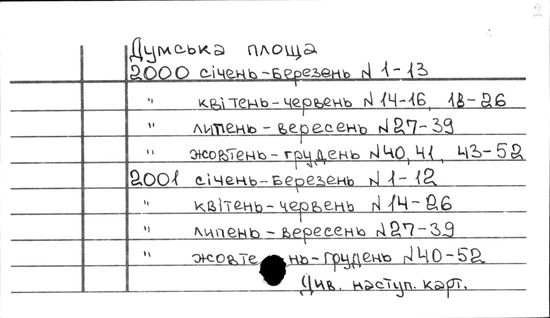 2
Думська площа
2000 січень-березень N 1-13
" квітень-червень N 14-16, 18-26
" липень-вересень N 27-39
" жовтень-грудень N 40, 41, 43-52
2001 січень-березень N 1-12
" квітень-червень N 14-26
" липень-вересень N 27-39
" жовте нь-грудень N 40-52
Див. наступ. карт.